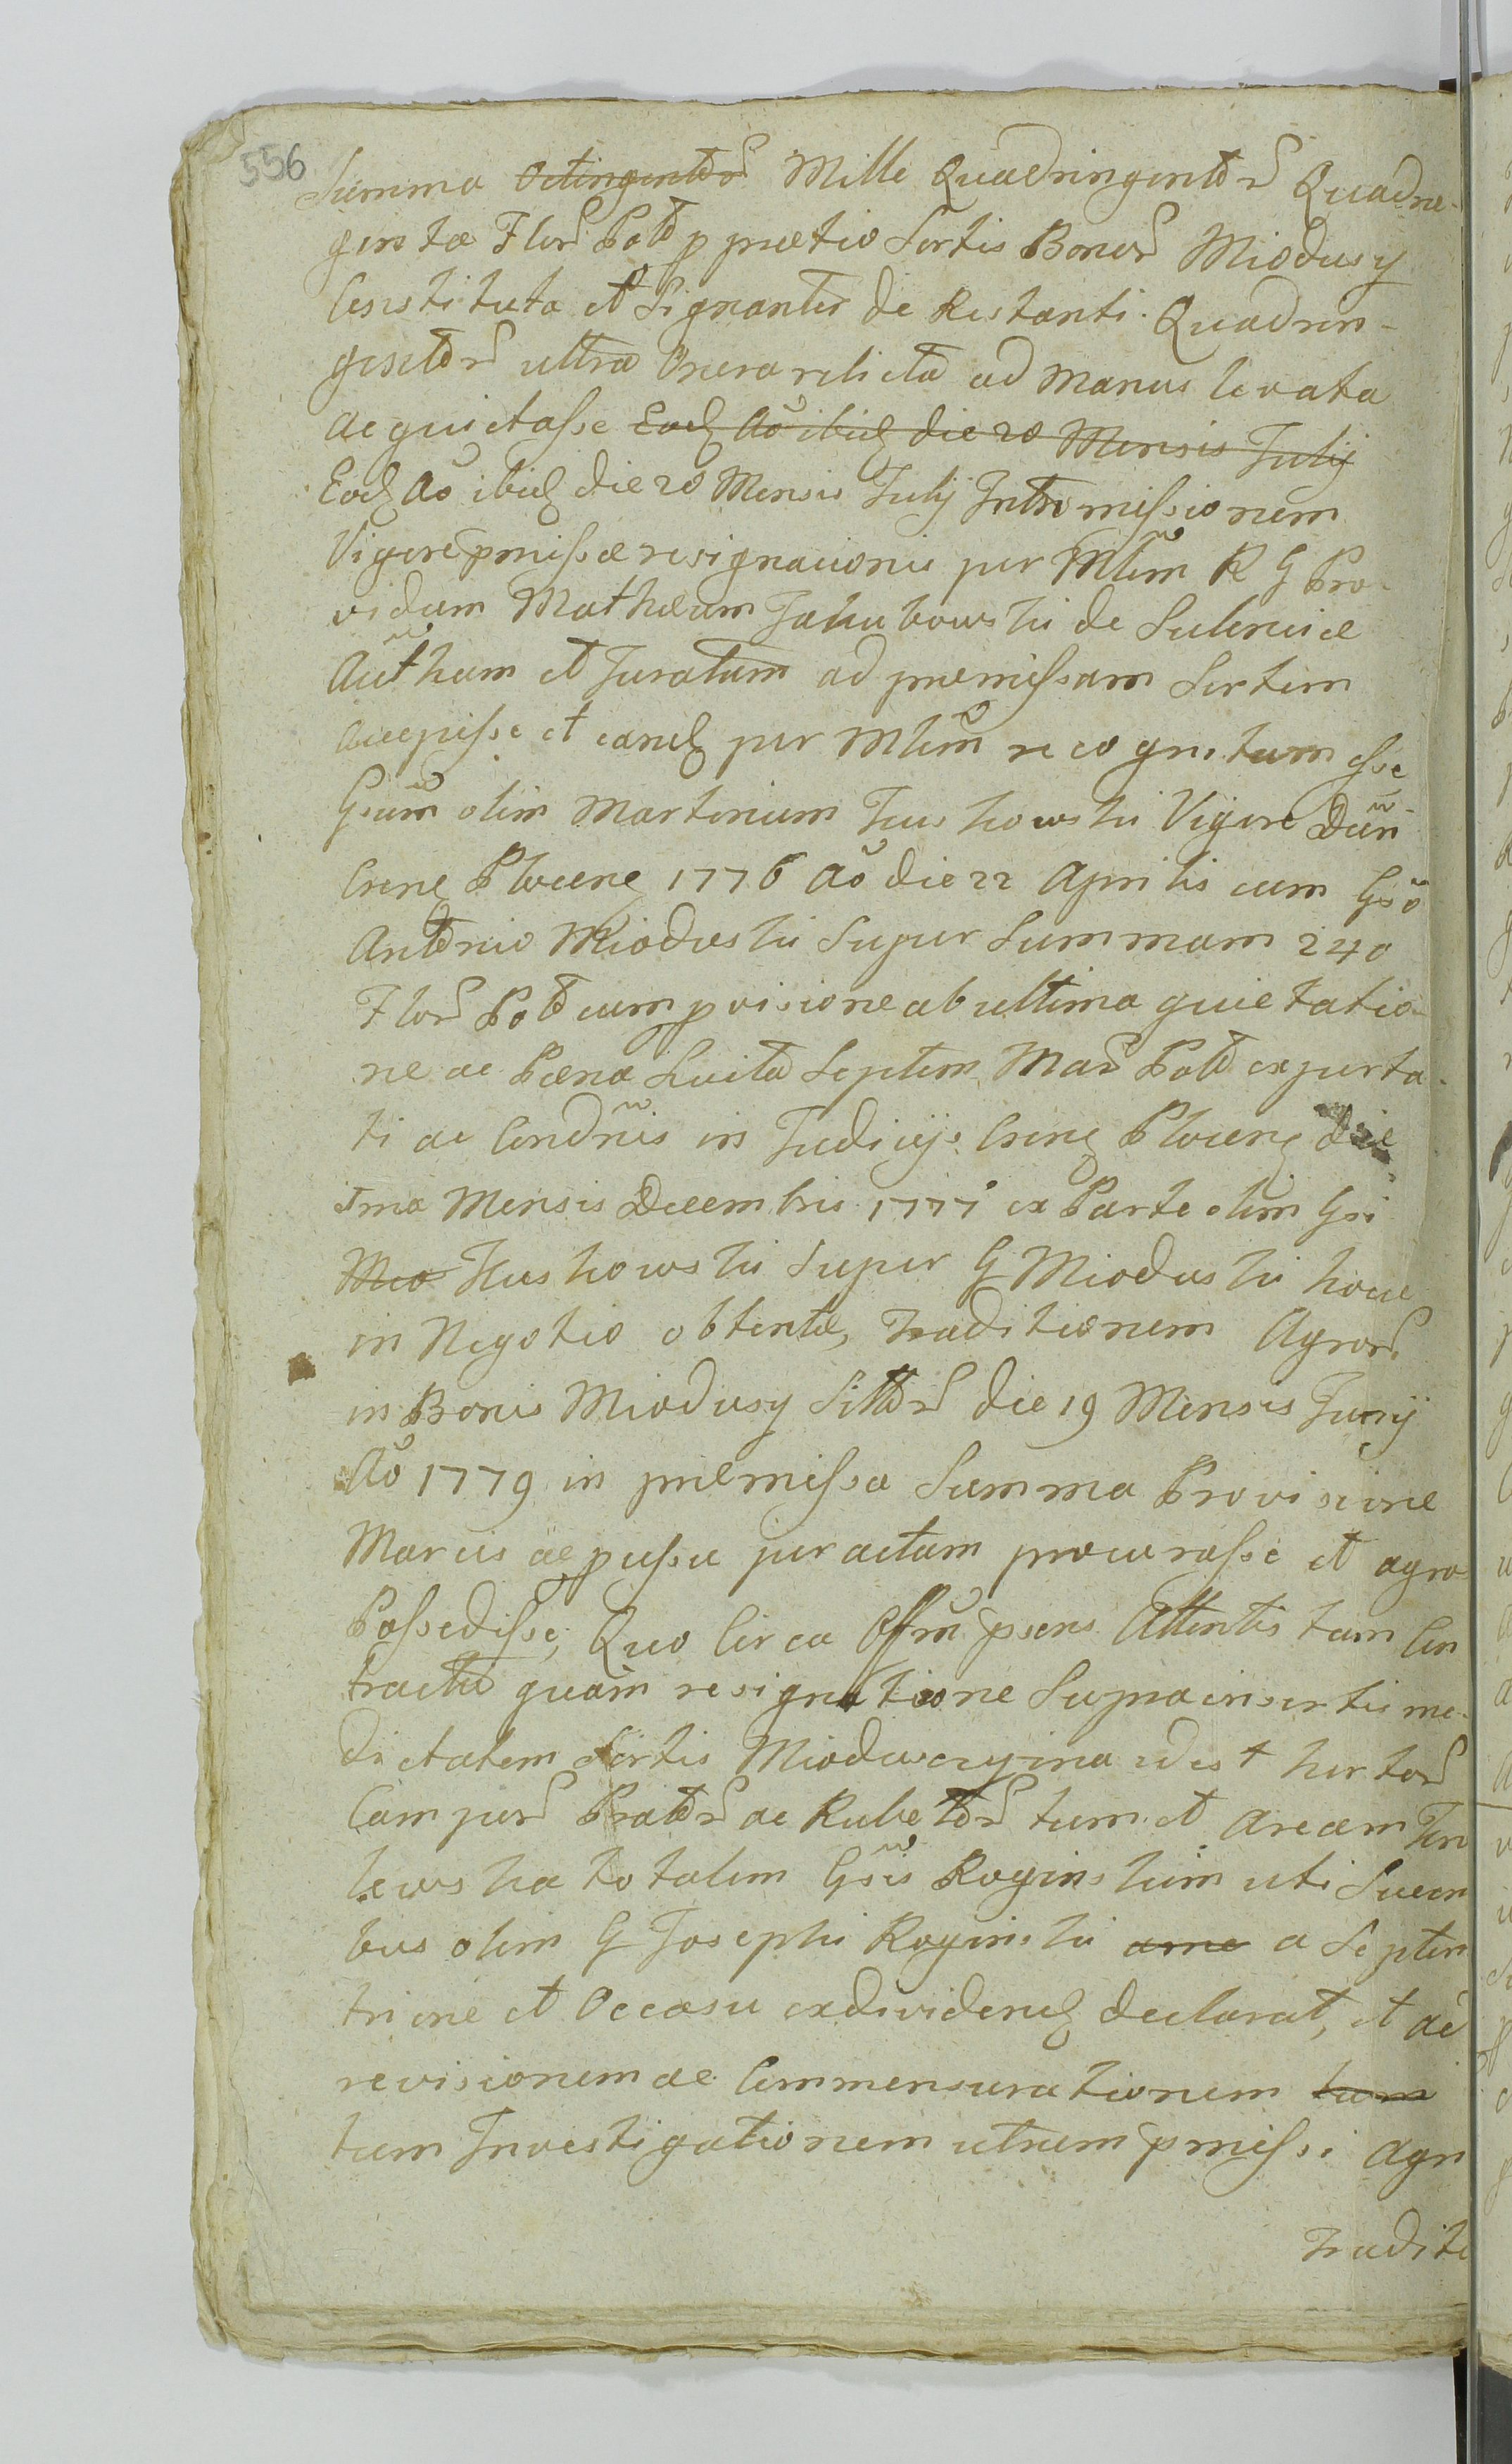 556
Summa Octingentor Mille Quadringentor Quadra-
ginta Flor Pol p praetio Sortis Bonor Miodusy
Constituta et Signanter de Restanti Quadrin-
gentor ultra Onera relicta ad Manus levata
ac quietasse Eod Aõ ibid die 20 Mensis Julij
Eod Aõ ibid die 20 Mensis Julij Intromissionem
Vigore pmissae resignacionis per Mlem R G Pro-
vidum Mathaeum Jakubowski de Sulencice
Autham et Juratum ad praemissam Sortem
accepisse et eand per Mlem recognitam esse
Gsum olim Martinum Kuskowski Vigore Dun
Crene Plocene 1776 Aõ die 22 Aprilis cum Gsõ
Antonio Mioduski Super Summam 240
Flor Pol cum pvisione ab ultima quietatio-
ne ac Paena Luita Septem Mar Pol ex purta-
ti ac Condnis in Judicijs Crene Plocene die
1ma Mensis Decembris 1777 ex Parte olim Gsi
Mio Kuskowski Super G Mioduski hocce
in Negotio obtentae, Traditionem Agror
in Bonis Miodusy Sittor die 19 Mensis Junij
Aõ 1779 in praemissa Summa Provisione
Marcis ac peractam procurasse et agro
Possedisse, Quo Circa Offm psens Attentis tam Con
tractu quam resignatione Supra insertis me-
dietatem Sortis Miodusczyzna id est hortor
Campor Prator ac Rubetor tum et aream Kon
lewska totalem Gsis Roginskim uti Succes
bus olim G Josephi Roginski ame a Septen
trione et Occasu exdividend declarat, et ad
revisionem ac Commensurationem tum
tum Investigationem utrum pmissi Agri
Tradito